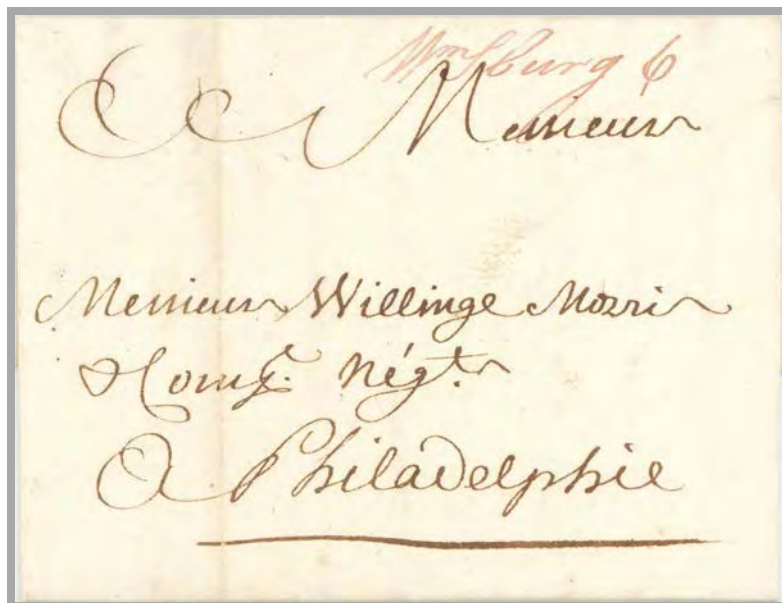 WmsBurg 6
A Messieurs
Messieurs Willinge Morris
& Compe. Négts
A Philadelphie